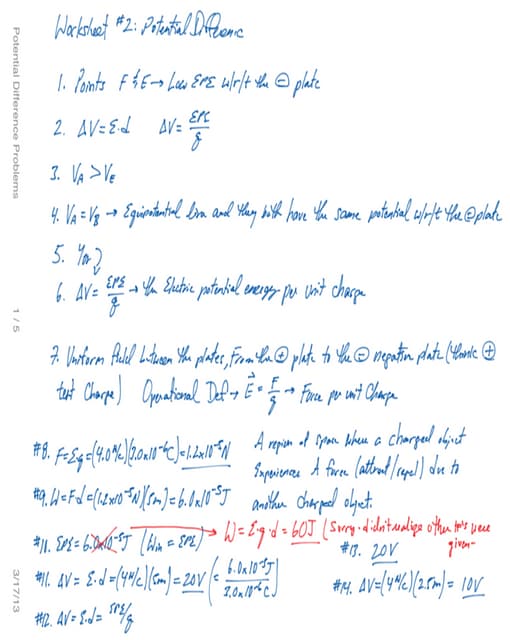 Worksheet #2: Potential Difference
1. Points F & E → Low EPE w/r/t the ⊖ plate
2. ΔV = E·d   ΔV = EPE/q
3. V_A > V_E
4. V_A = V_B → Equipotential line and they both have the same potential w/r/t the ⊖ plate
5. Yes
6. ΔV = EPE/q → the Electric potential energy per unit charge
7. Uniform field between the plates, From the ⊕ plate to the ⊖ negative plate (think ⊕
test Charge)   Operational Def → E = F/q → Force per unit Charge
#8. F=Eq=(4.0 N/C)(3.0x10⁻⁶C)=1.2x10⁻⁵N
A region of space where a charged object
experiences A force (attract/repel) due to
another charged object.
#9. W=Fd=(1.2x10⁻⁵N)(5m)=6.0x10⁻⁵J
#10. EPE= 6.0x10⁻⁵J (Win = EPE)
→ W=E·q·d = 60J (Sorry - didn't realize other were
given-
#11. ΔV = E·d=(4N/C)(5m)=20V (= 6.0x10⁻⁵J / 3.0x10⁻⁶C)
#12. ΔV = E·d= EPE/q
#13. 20V
#14. ΔV=(4N/C)(2.5m)= 10V
Potential Difference Problems
1 / 5
3/17/13